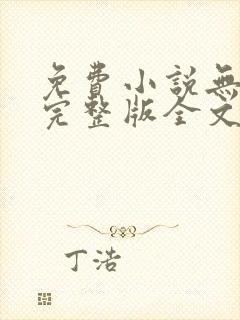 免費小說無
完整版全文
丁浩